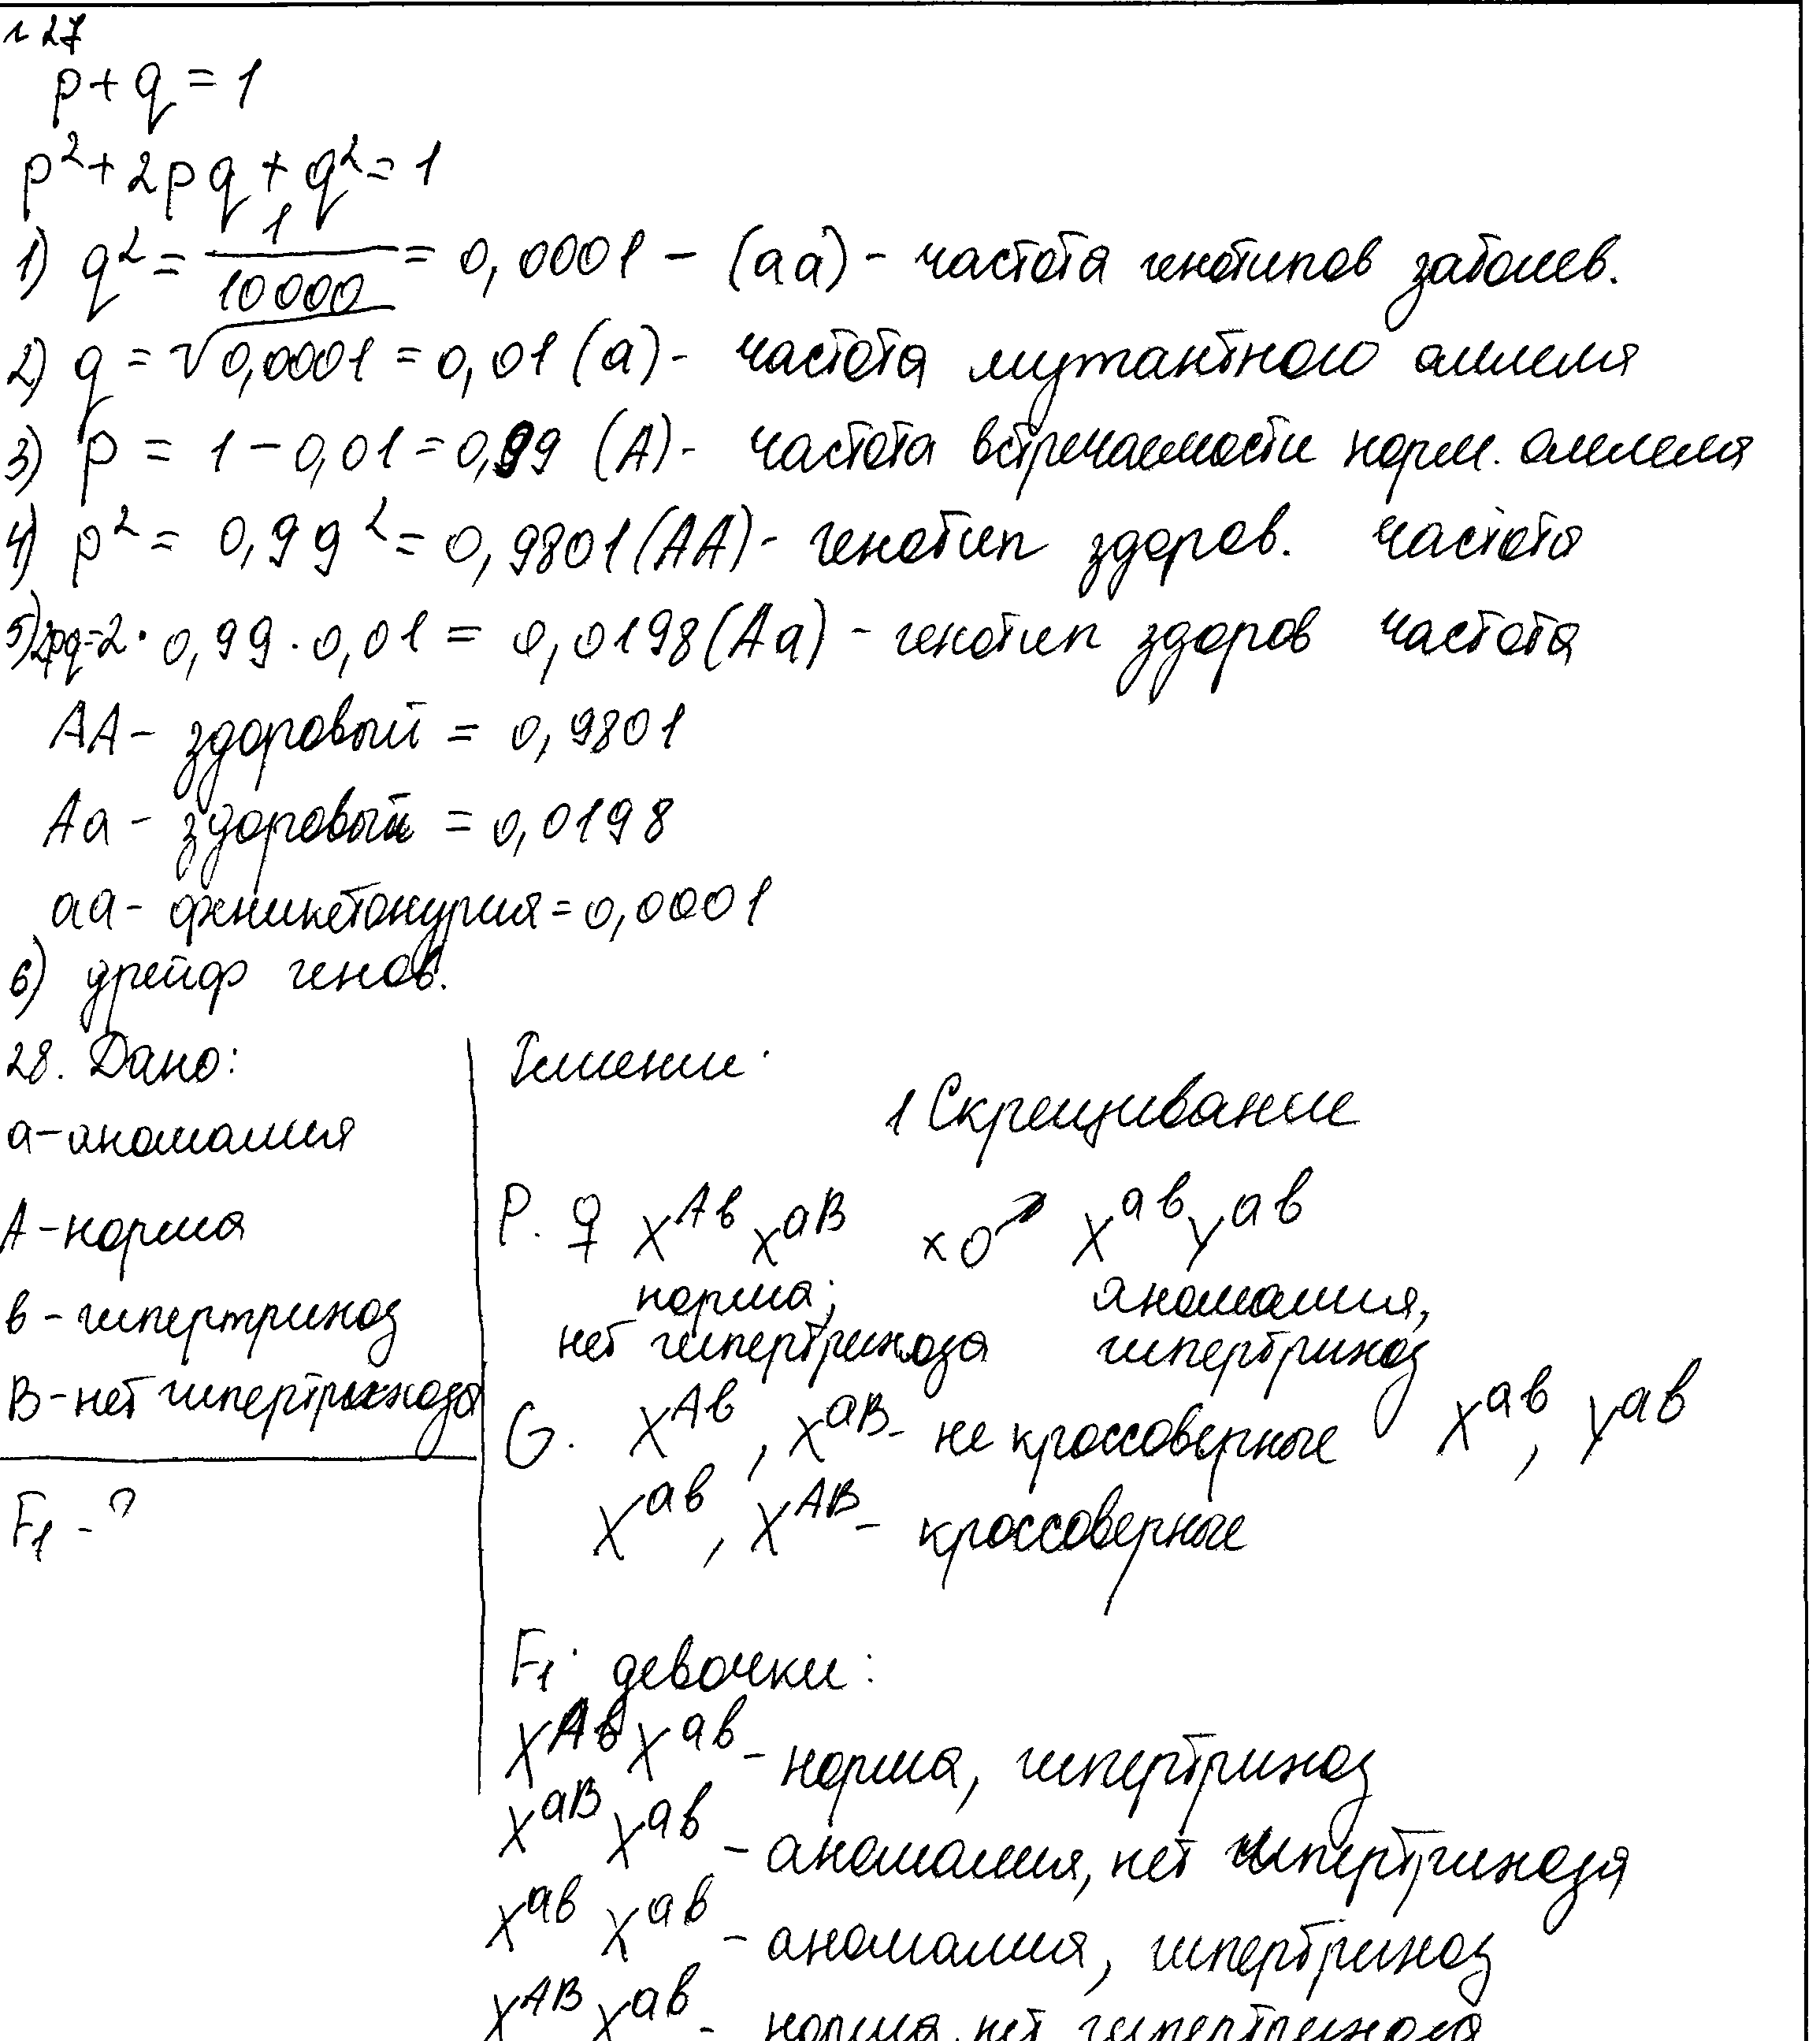 № 27
p + q = 1
p² + 2pq + q² = 1
1) q² = 1/10000 = 0,0001 - (aa) - частота генотипов заболев.
2) q = √0,0001 = 0,01 (a) - частота мутантного аллеля
3) p = 1 - 0,01 = 0,99 (A) - частота встречаемости норм. аллеля
4) p² = 0,99² = 0,9801 (AA) - генотип здоров. частота
5) 2pq = 2 · 0,99 · 0,01 = 0,0198 (Aa) - генотип здоров частота
AA - здоровый = 0,9801
Aa - здоровый = 0,0198
aa - фникетонурия = 0,0001
6) дрейф генов.
28. Дано:
a - аномалия
A - норма
в - гипертрихоз
B - нет гипертрихоза
F₁ - ?
Решение:
1 Скрещивание
P. ♀ X^Aв X^aB × ♂ X^aв Y^aв
норма; аномалия,
нет гипертрихоза гипертрихоз
G. X^Aв, X^aB - не кроссоверные X^aв, Y^aв
X^aв, X^AB - кроссоверные
F₁: девочки:
X^Aв X^aв - норма, гипертрихоз
X^aB X^aв - аномалия, нет гипертрихоза
X^aв X^aв - аномалия, гипертрихоз
X^AB X^aв - норма, нет гипертрихоза